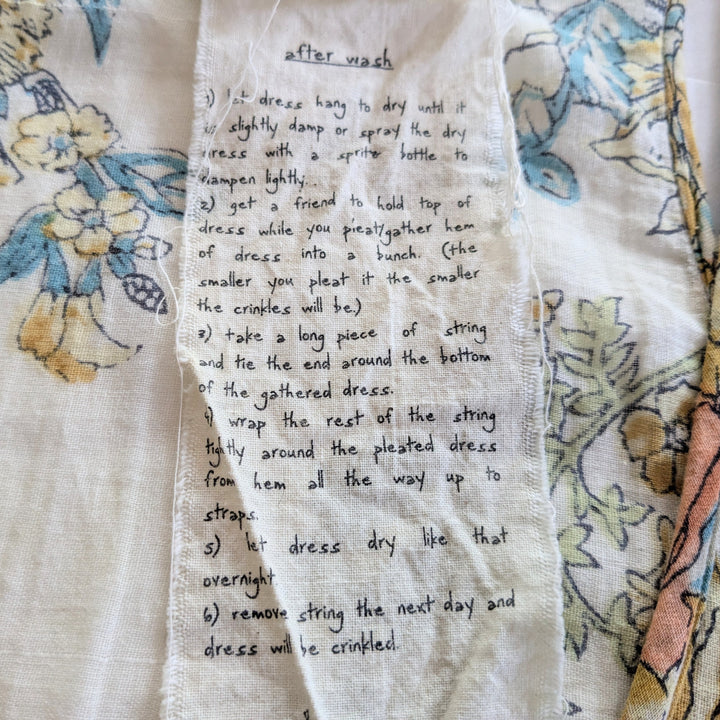 after wash
1) let dress hang to dry until it
is slightly damp or spray the dry
dress with a sprite bottle to
dampen lightly..
2) get a friend to hold top of
dress while you pleat/gather hem
of dress into a bunch. (the
smaller you pleat it the smaller
the crinkles will be.)
3) take a long piece of string
and tie the end around the bottom
of the gathered dress.
4) wrap the rest of the string
tightly around the pleated dress
from hem all the way up to
straps.
5) let dress dry like that
overnight
6) remove string the next day and
dress will be crinkled.